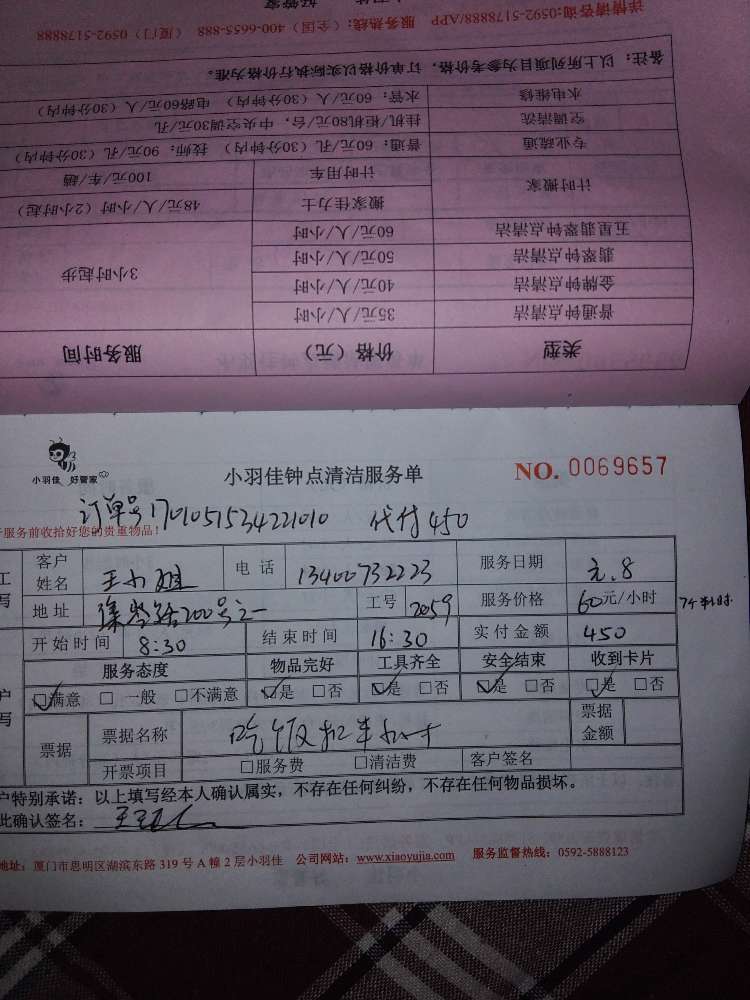 详情请咨询:0592-5178888/APP 服务热线:(全国) 400-6655-888 (厦门) 0592-5178888
备注:以上所列项目为参考价格,订单价格以实际执行价格为准。
水电维修 水管:60元/人(30分钟内) 电路60元/人(30分钟内)
空调清洗 挂机/柜机80元/台,中央空调30元/孔
专业疏通 普通:60元/孔(30分钟内) 技师:90元/孔(30分钟内)
计时搬家 计时用车 100元/车/趟
搬家佳力士 48元/人/小时(2小时起)
五星翡翠钟点清洁 60元/人/小时
翡翠钟点清洁 50元/人/小时 3小时起步
金牌钟点清洁 40元/人/小时
普通钟点清洁 35元/人/小时
类型 价格(元) 服务时间
小羽佳 好管家 小羽佳钟点清洁服务单 NO. 0069657
订单号1701051534221010 代付450
服务前收拾好您的贵重物品!
客户姓名 王小姐 电话 13400732223 服务日期 元.8
地址 200号之一 工号 2059 服务价格 60元/小时 7个半小时
开始时间 8:30 结束时间 16:30 实付金额 450
服务态度 物品完好 工具齐全 安全结束 收到卡片
☑满意 □一般 □不满意 ☑是 □否 ☑是 □否 ☑是 □否 ☑是 □否
票据 票据名称 吃饭扣半小时 票据金额
开票项目 □服务费 □清洁费 客户签名
户特别承诺:以上填写经本人确认属实,不存在任何纠纷,不存在任何物品损坏。
此确认签名:
地址:厦门市思明区湖滨东路 319 号 A 幢 2 层小羽佳 公司网站:www.xiaoyujia.com 服务监督热线:0592-5888123